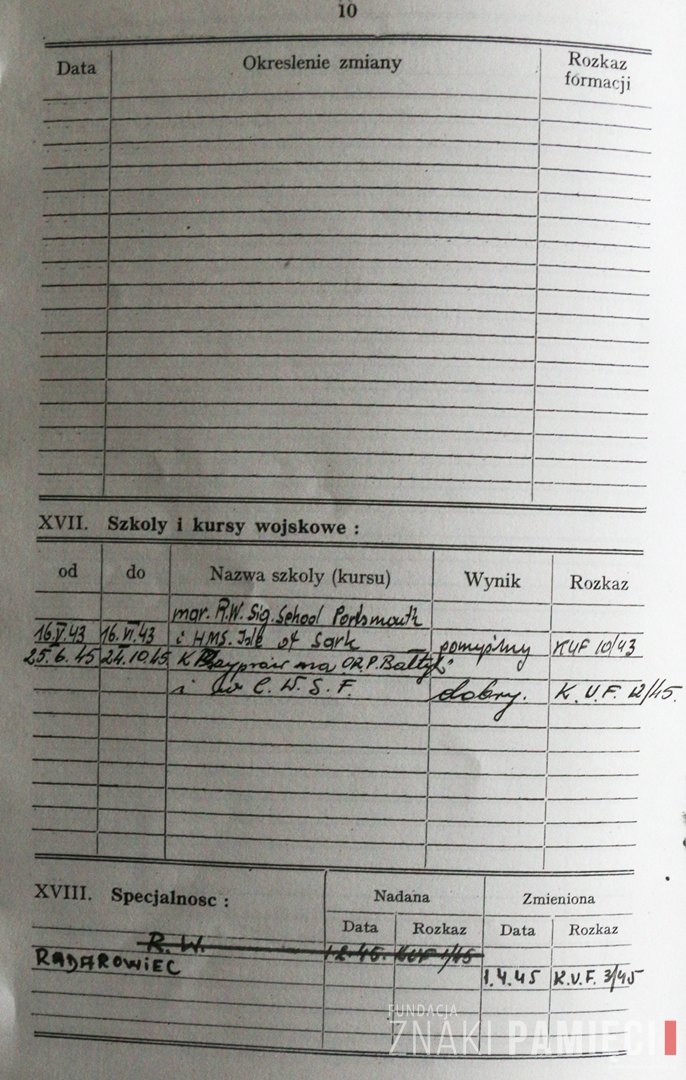 10
Data Okreslenie zmiany Rozkaz formacji
XVII. Szkoly i kursy wojskowe :
od do Nazwa szkoly (kursu) Wynik Rozkaz
mar. R.W. Sig. School Portsmouth
16.V.43 16.VI.43 i H.M.S. Isle of Sark pomyślny KUF 10/43
25.6.45 24.10.45 K. na O.R.P. Bałtyk"
i w C.W.S.F. dobry. K.U.F. 12/45.
XVIII. Specjalnosc : Nadana Zmieniona
Data Rozkaz Data Rozkaz
R.W. 1.2.45. KUF 1/45
RADAROWIEC 1.4.45 K.U.F. 3/45
FUNDACJA
ZNAKI PAMIĘCI